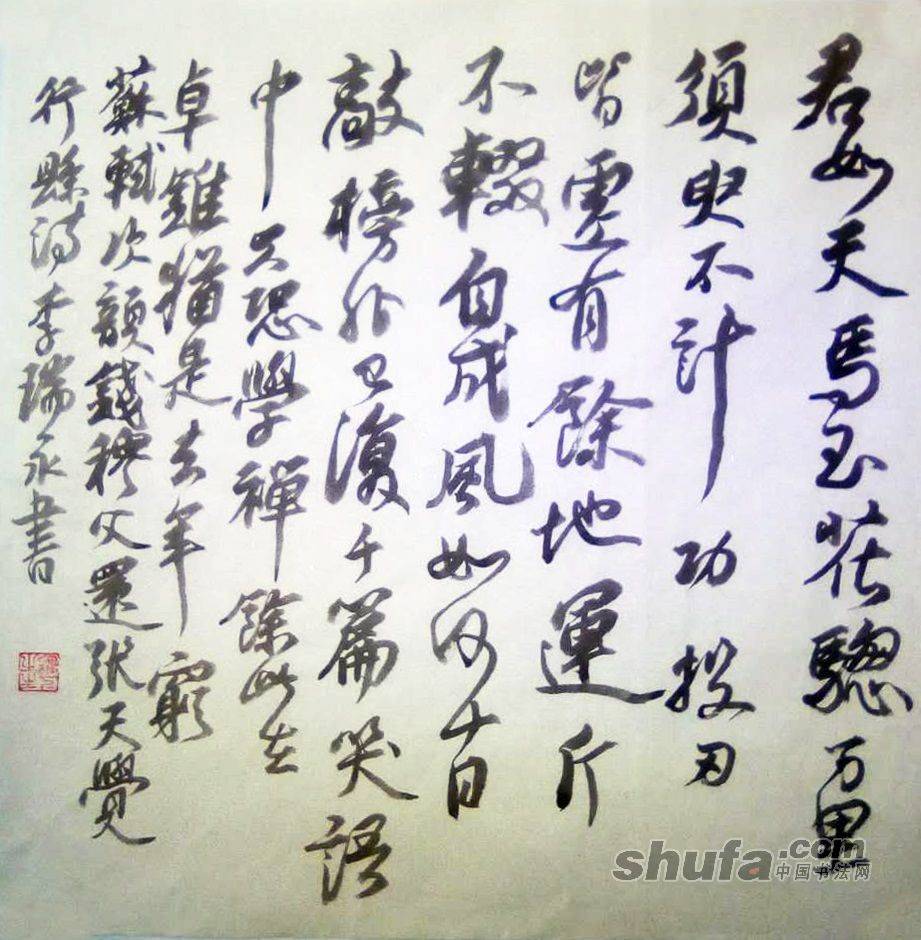 君如天馬玉花驄万里
須臾不計功投刃
皆虛有餘地運斤
不輟自成風如何十日
敲榜外已復千篇笑語
中只恐學禪餘此在
卓錐猶是去年窮
蘇軾次韻錢穆父還張天覺
行縣詩李瑞永書
shufa.com
中国书法网